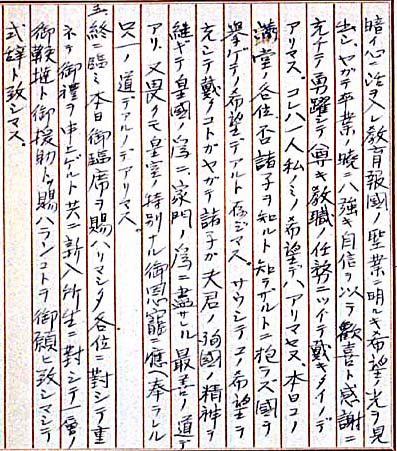 暗イ心ニ活ヲ入レ教育報國ノ聖業ニ明ルキ希望ノ光ヲ見
出シ、ヤガテ卒業ノ暁ニハ強キ自信ヲ以テ歓喜ト感謝ニ
充チテ勇躍シテ尊キ教職ノ任務ニツイテ戴キタイノデ
アリマス。コレハ一人私ノミノ希望デハアリマセヌ、本日コノ
満堂ノ各位、否諸子ヲ知ルト知ラザルトニ拘ラズ國ヲ
挙ゲテノ希望デアルト存ジマス。サウシテコノ希望ヲ
充シテ戴クコトガヤガテ諸子ガ夫君ノ殉國ノ精神ヲ
継ギテ皇國ノ為ニ家門ノ為ニ盡サレル最善ノ道デ
アリ、又畏クモ皇室ノ特別ナル御恩寵ニ應ヘ奉ラレル
只一ノ道デアルノデアリマス。
終ニ臨ミ本日御臨席ヲ賜ハリマシタ各位ニ對シテ重
ネテ御禮ヲ申上ゲルト共ニ新入所生ニ對シテ一層ノ
御鞭撻ト御援助トヲ賜ハランコトヲ御願ヒ致シマシテ
式辞ト致シマス。